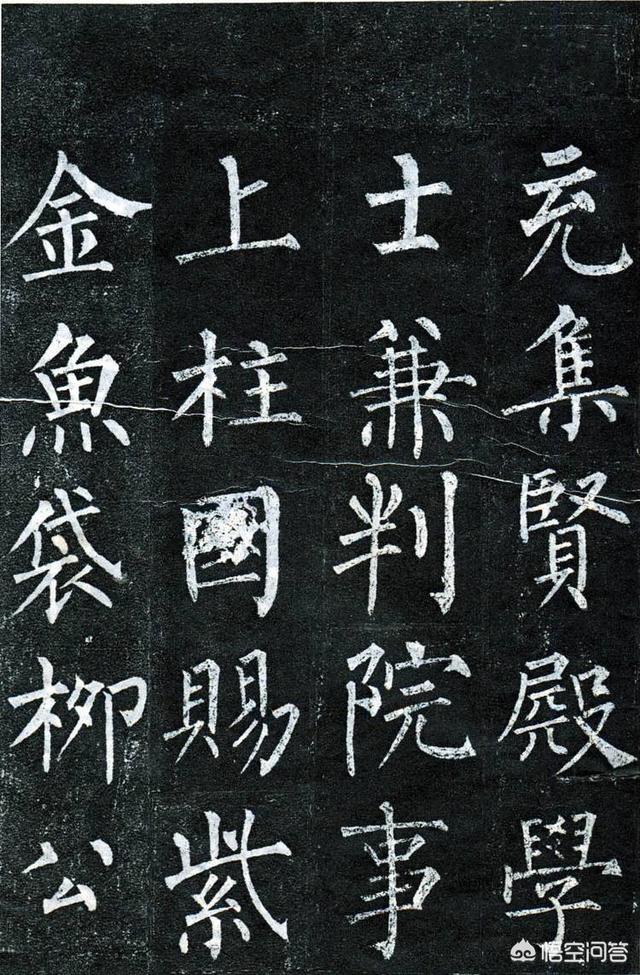 充集賢殿學
士兼判院事
上柱國賜紫
金魚袋柳公
悟空问答